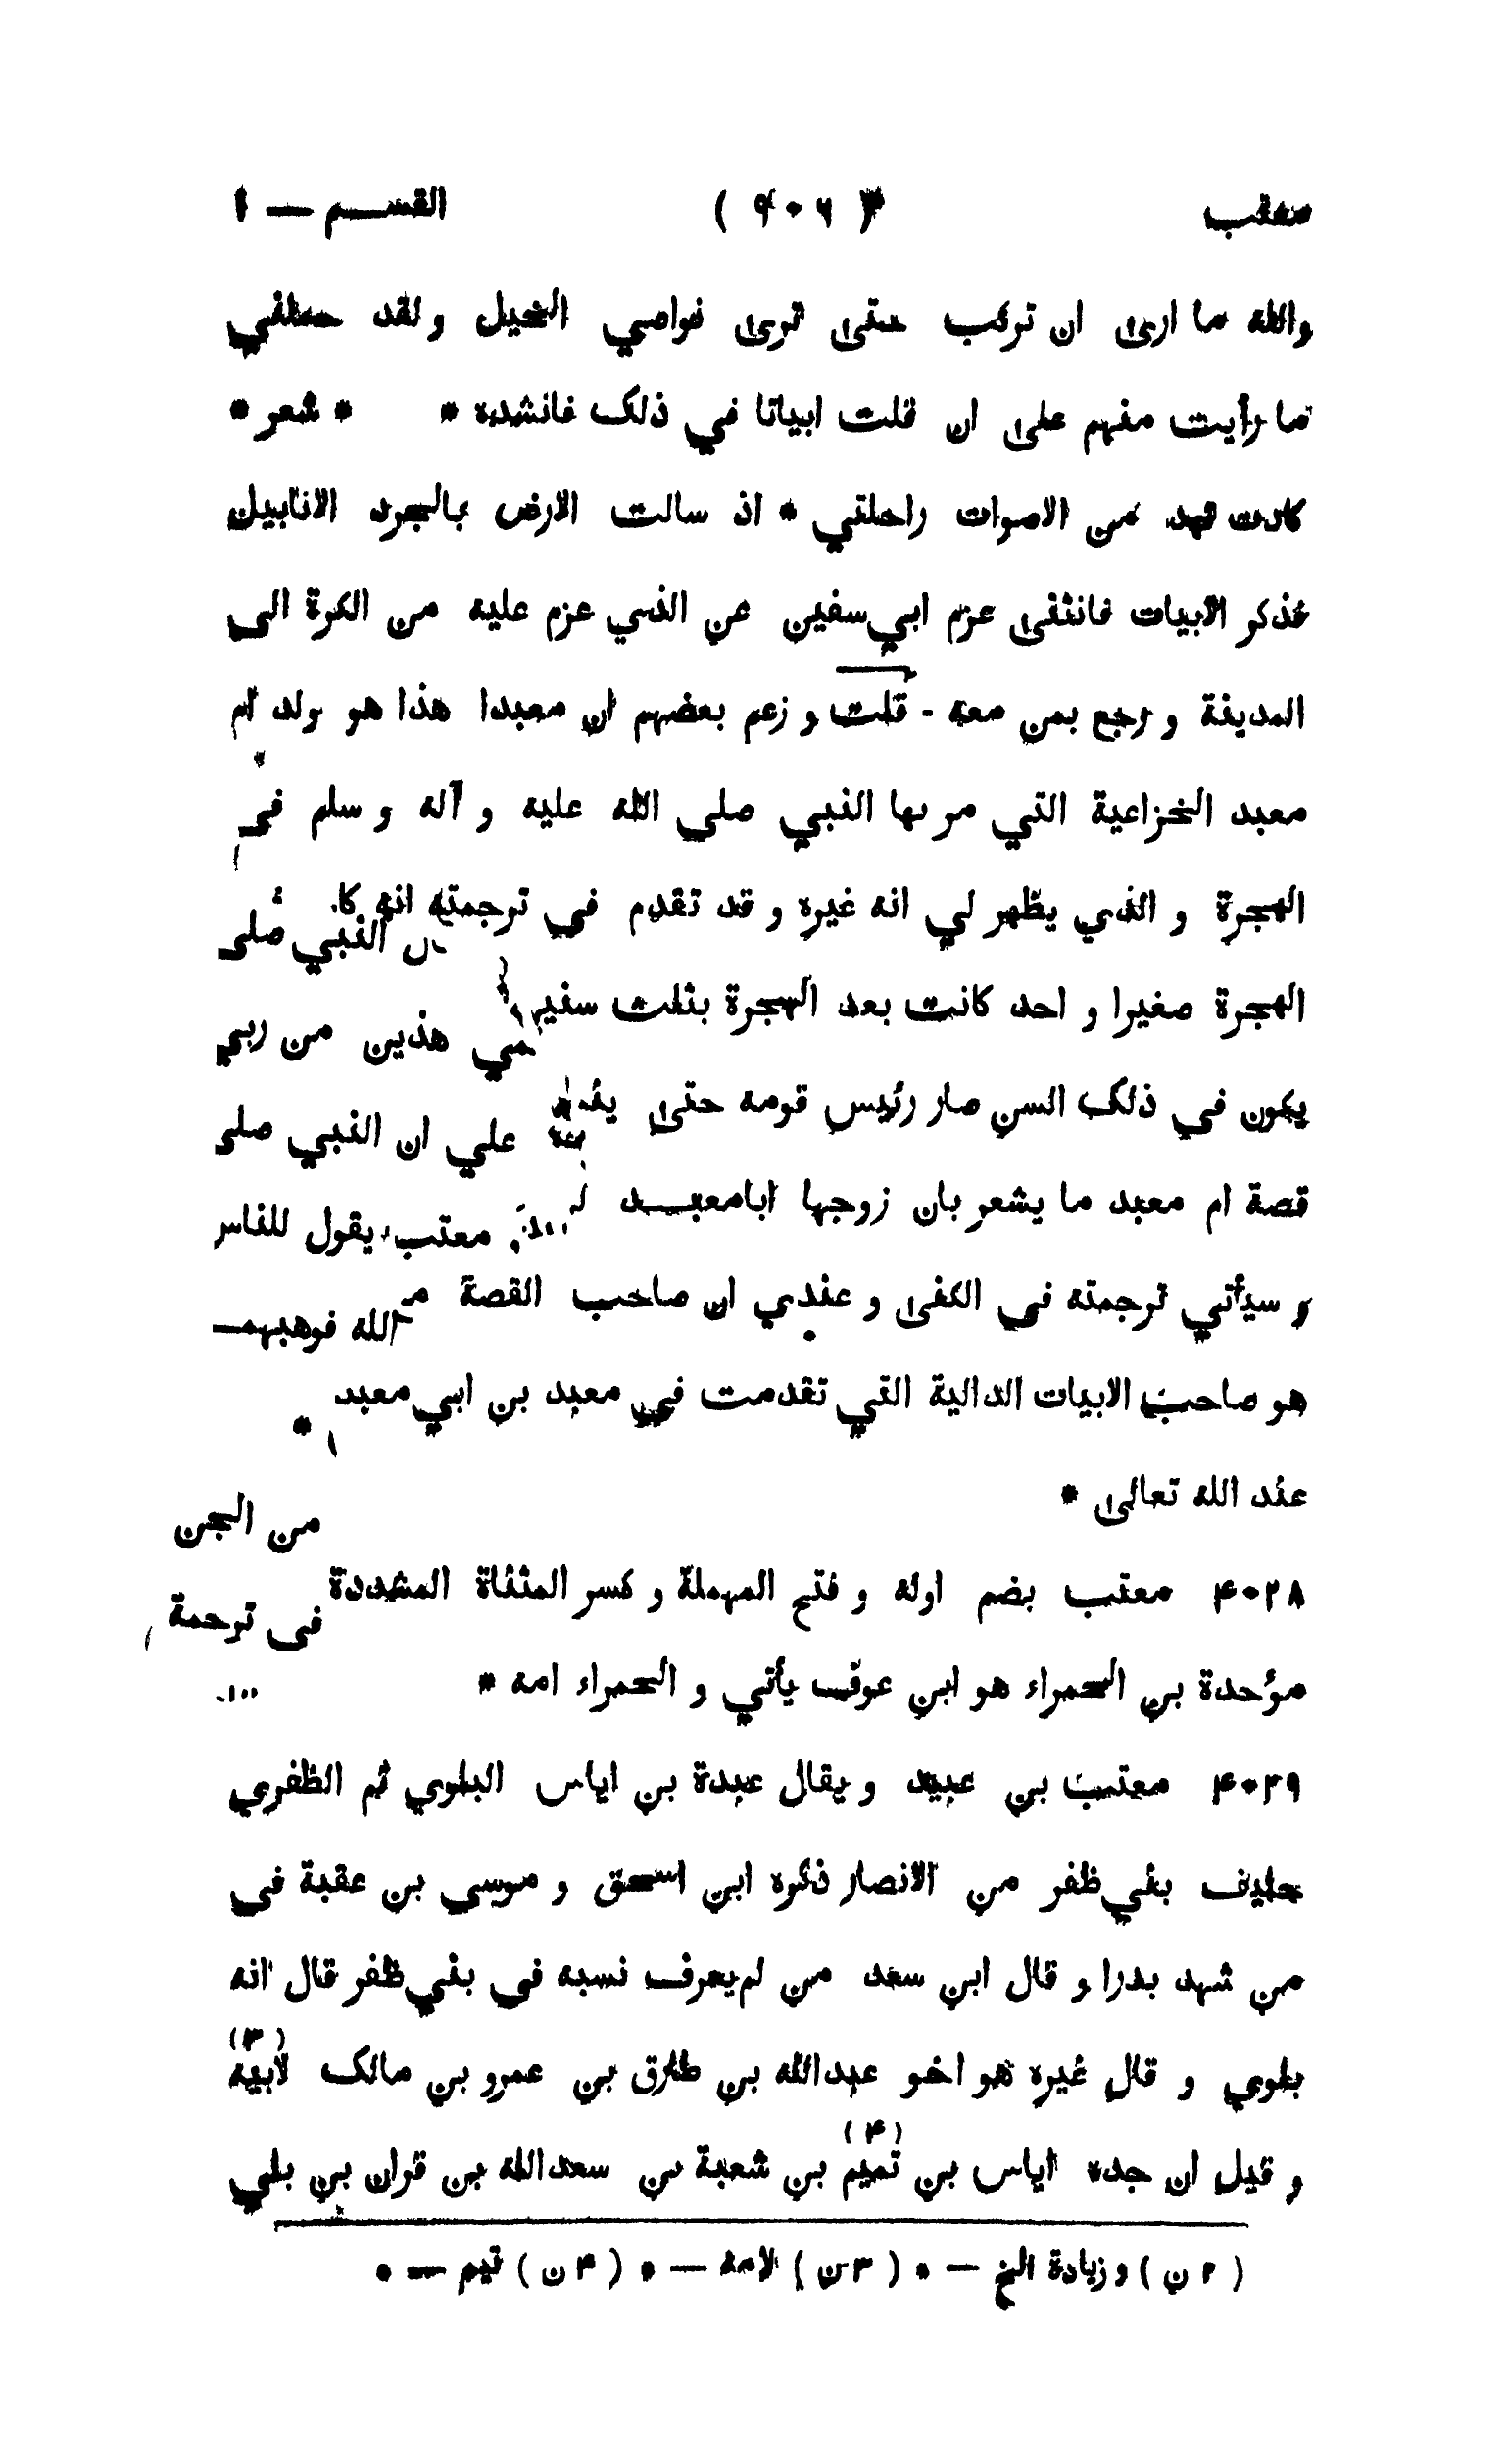 معتب ( ٩٠٦ ) القسم — ١
والله ما ارى ان تركب حتى ترى نواصي الخيل ولقد حملني
ما رأيت منهم على ان قلت ابياتا في ذلك فانشده * * شعر *
كادت تهد من الاصوات راحلتي * اذ سالت الارض بالجرد الابابيل
فذكر الابيات فانثنى عزم ابي سفين عن الذي عزم عليه من الكرة الى
المدينة و رجع بمن معه - قلت و زعم بعضهم ان معبدا هذا هو ولد ام
معبد الخزاعية التي مر بها النبي صلى الله عليه و آله و سلم في
الهجرة و الذي يظهر لي انه غيره و قد تقدم في ترجمته انه كا
ن النبي صلى
الهجرة صغيرا و احد كانت بعد الهجرة بثلث سنين
هذين من ربي
يكون في ذلك السن صار رئيس قومه حتى
علي ان النبي صلى
قصة ام معبد ما يشعر بان زوجها ابامعبد
معتب يقول للناس
و سيأتي ترجمته في الكنى و عندي ان صاحب القصة
الله فوهبهم
هو صاحب الابيات الدالية التي تقدمت في معبد بن ابي معبد
*
عند الله تعالى *
من الجن
٤٠٢٨ معتب بضم اوله و فتح المهملة و كسر المثناة المشددة
في ترجمة
مؤحدة بن الحمراء هو ابن عوف يأتي و الحمراء امه *
٤٠٢٩ معتب بن عبيد و يقال عبدة بن اياس البلوي ثم الظفري
حليف بني ظفر من الانصار ذكره ابن اسحق و موسى بن عقبة في
من شهد بدرا و قال ابن سعد من لم يعرف نسبه في بني ظفر قال انه
بلوي و قال غيره هو اخو عبدالله بن طارق بن عمرو بن مالك لابيه (٣)
و قيل ان جده اياس بن تميم (٤) بن شعبة بن سعدالله بن قران بن بلي
( ٢ ن ) و زيادة الخ — * ( ٣ ن ) لامه — * ( ٤ ن ) تيم — *